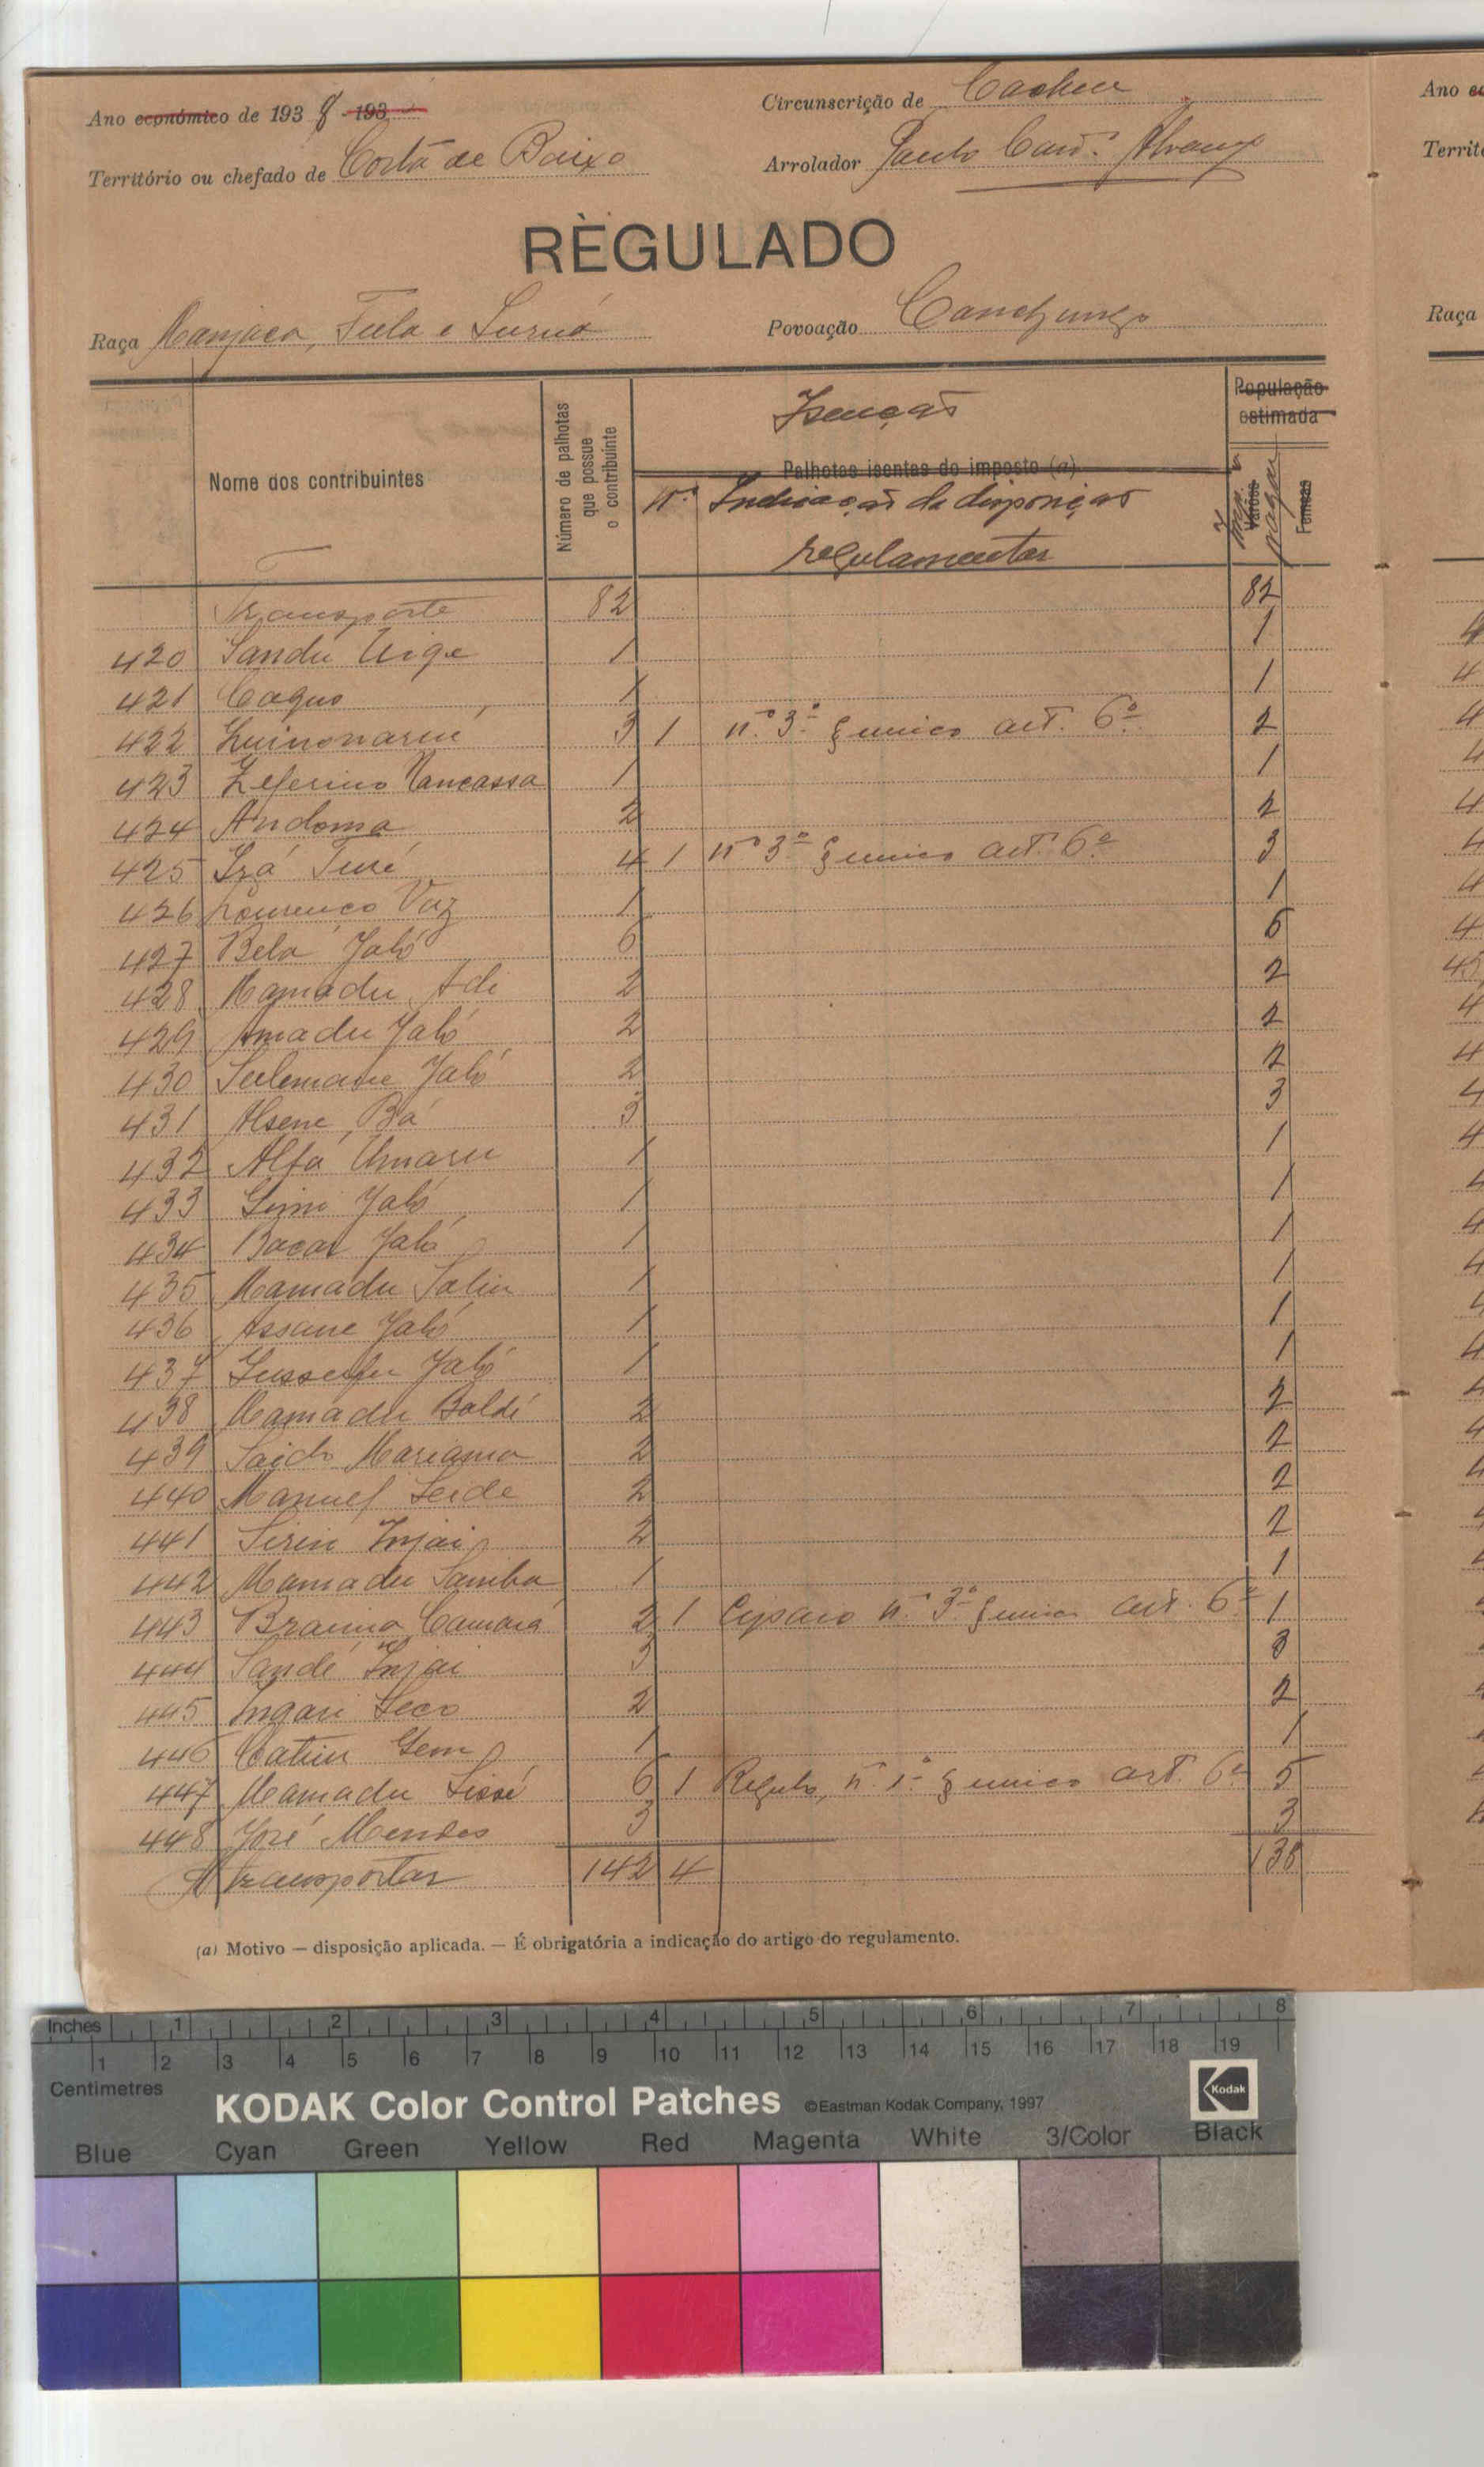 Ano económico de 1938 -193
Circunscrição de Cacheu
Território ou chefado de Costa de Baixo
Arrolador Paulo
REGULADO
Raça Manjaca, Fula e Sursuá
Povoação Canchungo
Nome dos contribuintes
Número de palhotas que possue o contribuinte
Isenção
Palhotas isentas do imposto (a)
N.º Indicação da disposição regulamentar
População estimada
Varões
Femeas
Transporte 82 82
420 Sandu 1 1
421 Caquo 1 1
422 3 1 n.º 3.º § unico art. 6.º 2
423 Zeferino Mancassa 1 1
424 Andoma 2 2
425 Turé 4 1 n.º 3.º § unico art. 6.º 3
426 Lourenço Vaz 1 1
427 Bela Jaló 6 6
428 Mamadu Adi 2 2
429 Amadu Jaló 2 2
430 Sulemane Jaló 2 2
431 Alsene Bá 3 3
432 Alfa Umaru 1 1
433 Jaló 1 1
434 Bacar Jaló 1 1
435 Mamadu Saliu 1 1
436 Assane Jaló 1 1
437 Jussufu Jaló 1 1
438 Mamadu Baldé 2 2
439 Saido Mariama 2 2
440 Manuel Seide 2 2
441 Sirin Injai 2 2
442 Mamadu Samba 1 1
443 Braima Camará 2 1 Cipaio n.º 3.º § unico art. 6.º 1
444 Sandé Injai 3 3
445 Ingari Seco 2 2
446 Catiu 1 1
447 Mamadu Sissé 6 1 Regulo, n.º 1.º § unico art. 6.º 5
448 José Mendes 3 3
A transportar 142 4 138
(a) Motivo — disposição aplicada. — É obrigatória a indicação do artigo do regulamento.
Ano
Territ
Raça
Inches 1 2 3 4 5 6 7 8
1 2 3 4 5 6 7 8 9 10 11 12 13 14 15 16 17 18 19
Centimetres
KODAK Color Control Patches ©Eastman Kodak Company, 1997 Kodak
Blue Cyan Green Yellow Red Magenta White 3/Color Black